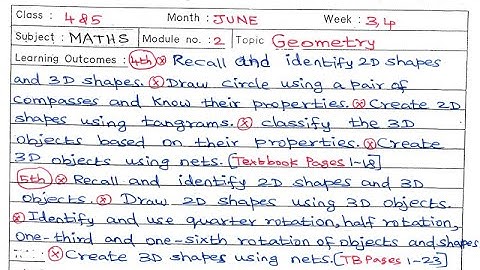 Class : 4 & 5 Month : JUNE Week : 3,4
Subject : MATHS Module no. : 2 Topic Geometry
Learning Outcomes : 4th ⊗ Recall and identify 2D shapes
and 3D shapes. ⊗ Draw circle using a pair of
compasses and know their properties. ⊗ Create 2D
shapes using tangrams. ⊗ classify the 3D
objects based on their properties. ⊗ Create
3D objects using nets. [Textbook Pages 1-18]
5th ⊗ Recall and identify 2D shapes and 3D
objects. ⊗ Draw 2D shapes using 3D objects.
⊗ Identify and use quarter rotation, half rotation,
one-third and one-sixth rotation of objects and shapes
⊗ Create 3D shapes using nets. [TB Pages 1-23]